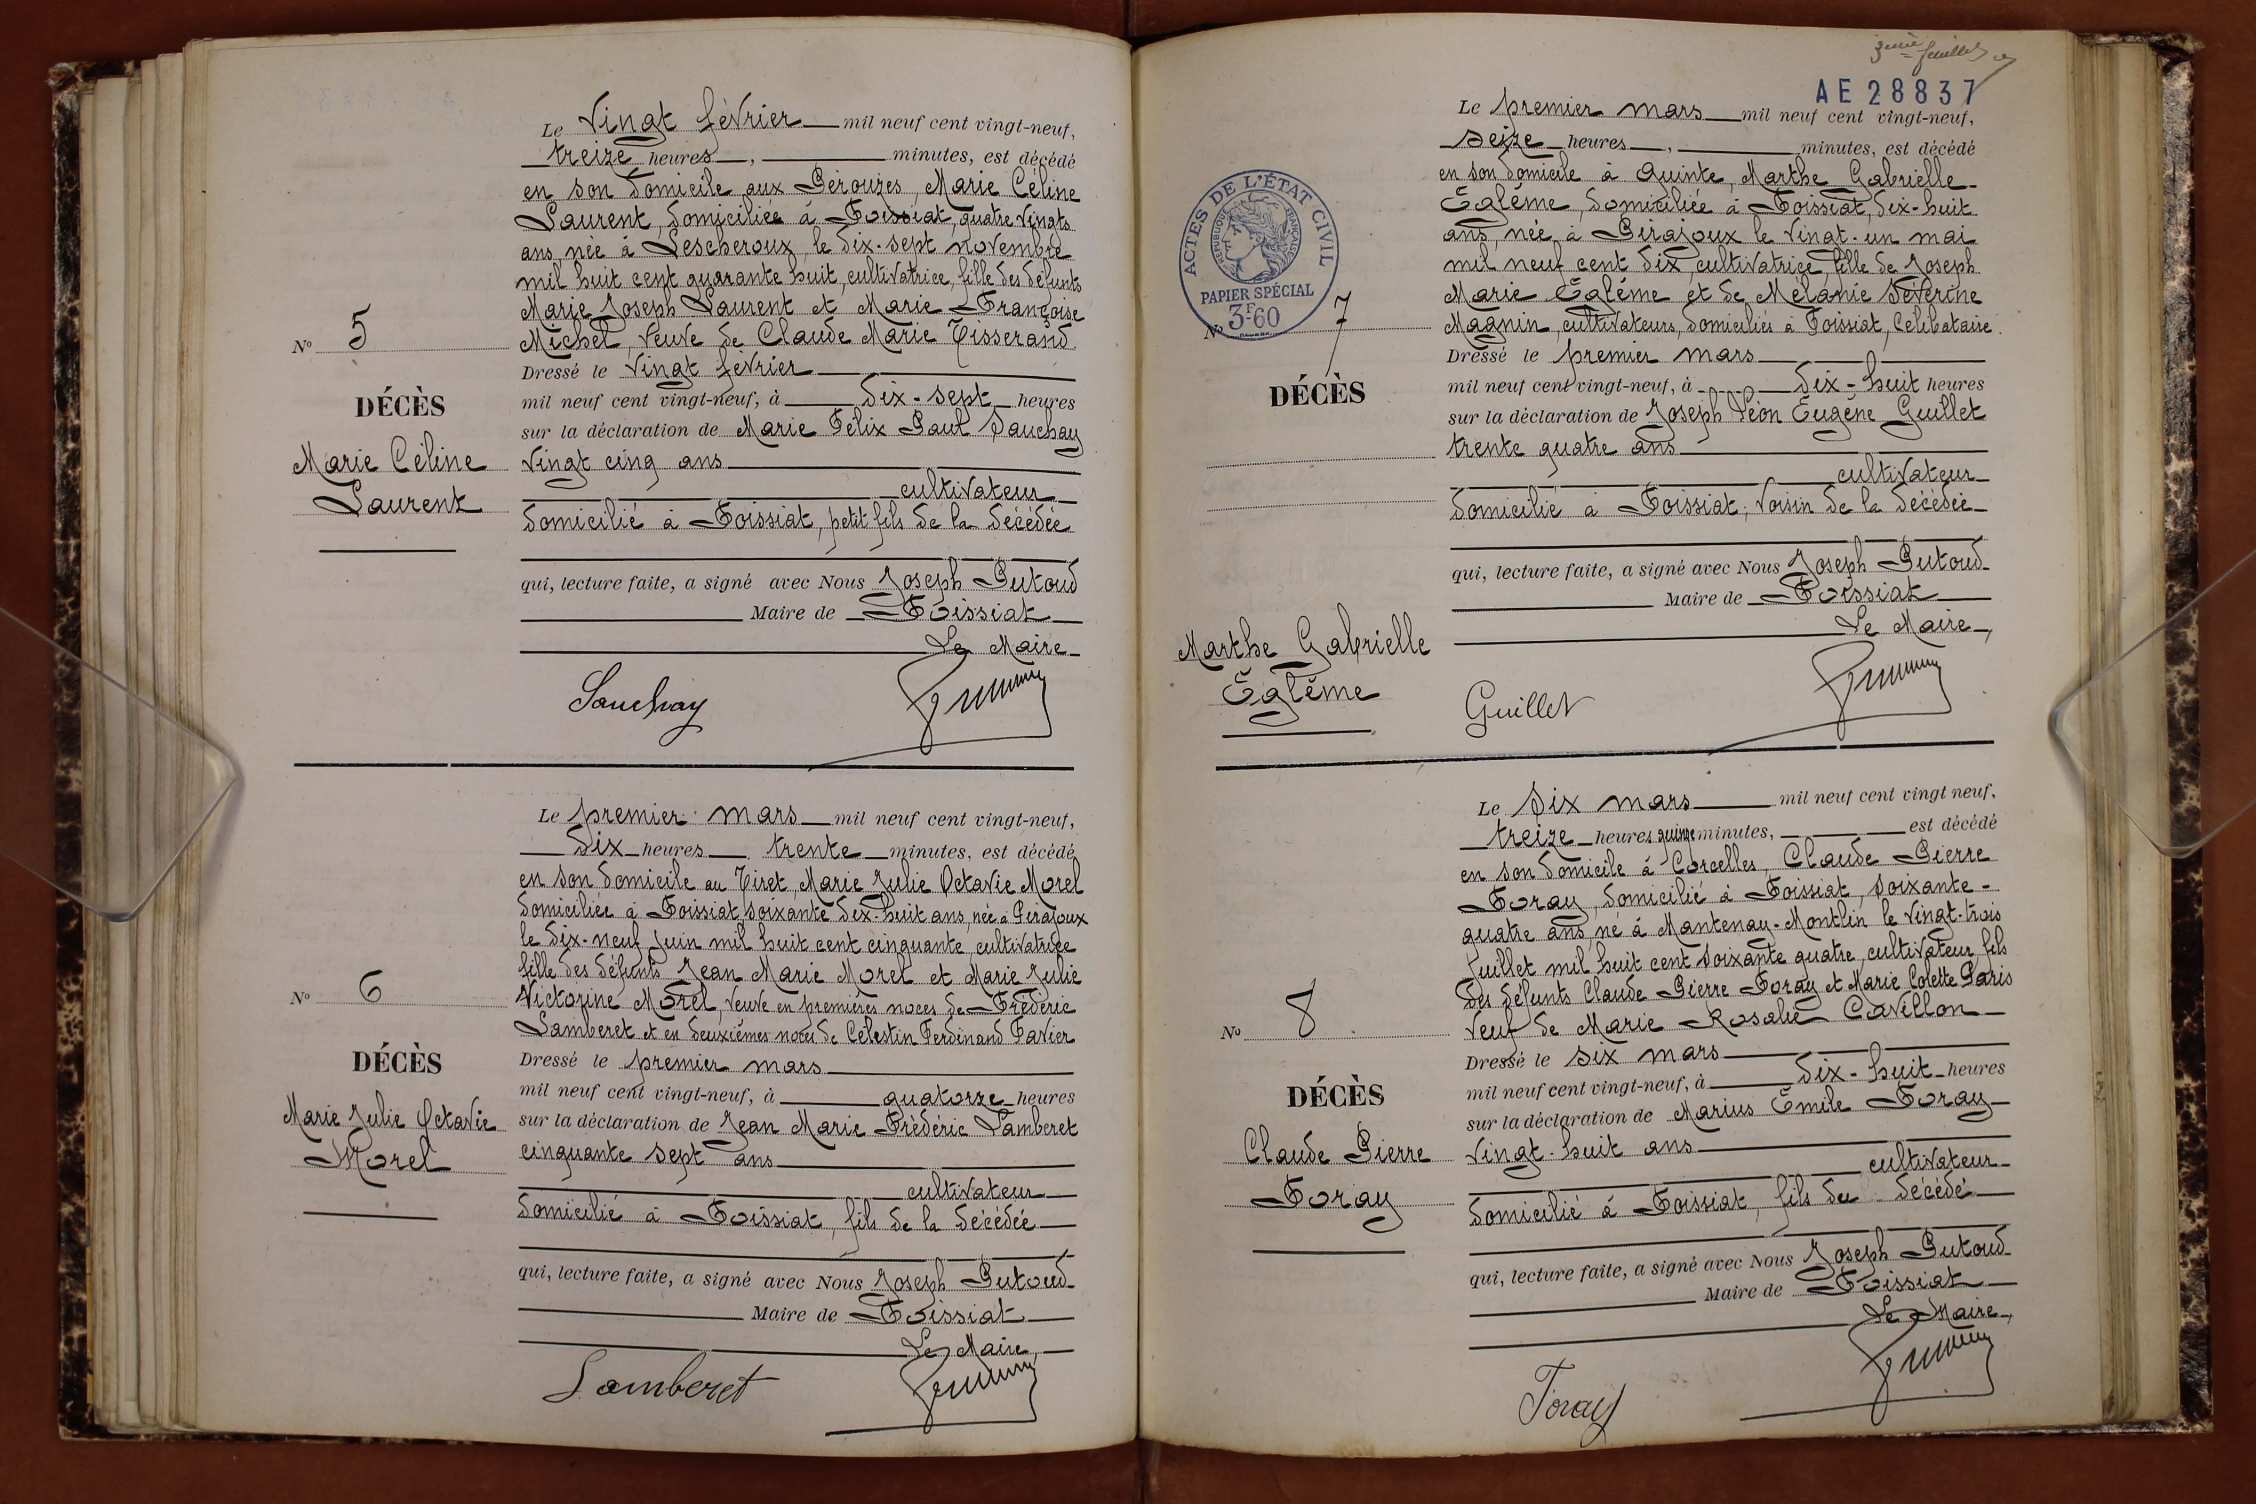 Le vingt février mil neuf cent vingt-neuf,
treize heures, minutes, est décédé
en son domicile aux Pérouzes, Marie Céline
Laurent, domiciliée à Foissiat, quatre vingts
ans, née à Lescheroux, le dix-sept novembre
mil huit cent quarante huit, cultivatrice, fille des défunts
Marie Joseph Laurent et Marie Françoise
Michel, veuve de Claude Marie Tisserand
Dressé le vingt février
mil neuf cent vingt-neuf, à dix-sept heures
sur la déclaration de Marie Félix Paul Sauchay
vingt cinq ans
cultivateur
domicilié à Foissiat, petit fils de la décédée
qui, lecture faite, a signé avec Nous Joseph Putoud
Maire de Foissiat
Le Maire
Sauchay
No 5
DÉCÈS
Marie Céline
Laurent
Le premier mars mil neuf cent vingt-neuf,
dix heures trente minutes, est décédé
en son domicile au Tiret, Marie Julie Octavie Morel
domiciliée à Foissiat, soixante dix-huit ans, née à Pirajoux
le dix-neuf juin mil huit cent cinquante, cultivatrice
fille des défunts Jean Marie Morel et Marie Julie
Victorine Morel, veuve en premières noces de Frédéric
Lamberet et en deuxièmes noces de Célestin Ferdinand Favier
Dressé le premier mars
mil neuf cent vingt-neuf, à quatorze heures
sur la déclaration de Jean Marie Frédéric Lamberet
cinquante sept ans
cultivateur
domicilié à Foissiat, fils de la décédée
qui, lecture faite, a signé avec Nous Joseph Putoud
Maire de Foissiat
Le Maire,
Lamberet
No 6
DÉCÈS
Marie Julie Octavie
Morel
3eme feuillet
AE 28837
ACTES DE L'ÉTAT CIVIL
RÉPUBLIQUE FRANÇAISE
PAPIER SPÉCIAL
3F60
Le premier mars mil neuf cent vingt-neuf,
seize heures, minutes, est décédé
en son domicile à Quinte, Marthe Gabrielle
Eglème, domiciliée à Foissiat, dix-huit
ans, née à Pirajoux le vingt-un mai
mil neuf cent dix, cultivatrice, fille de Joseph
Marie Eglème et de Mélanie Séverine
Magnin, cultivateurs, domiciliés à Foissiat, Célibataire.
Dressé le premier mars
mil neuf cent vingt-neuf, à dix-huit heures
sur la déclaration de Joseph Léon Eugène Guillet
trente quatre ans
cultivateur
domicilié à Foissiat, voisin de la décédée
qui, lecture faite, a signé avec Nous Joseph Putoud
Maire de Foissiat
Le Maire,
Guillet
No 7
DÉCÈS
Marthe Gabrielle
Eglème
Le six mars mil neuf cent vingt neuf,
treize heures quinze minutes, est décédé
en son domicile à Corcelles, Claude Pierre
Foray, domicilié à Foissiat, soixante-
quatre ans, né à Mantenay-Montlin le vingt-trois
juillet mil huit cent soixante quatre, cultivateur, fils
des défunts Claude Pierre Foray et Marie Colette Paris
veuf de Marie Rosalie Cavillon
Dressé le six mars
mil neuf cent vingt-neuf, à dix-huit heures
sur la déclaration de Marius Emile Foray
vingt-huit ans
cultivateur
domicilié à Foissiat, fils du décédé
qui, lecture faite, a signé avec Nous Joseph Putoud
Maire de Foissiat
Le Maire,
Foray
No 8
DÉCÈS
Claude Pierre
Foray